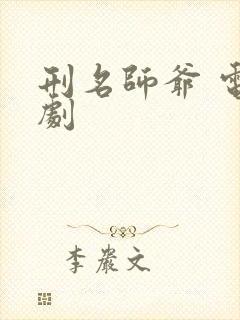 刑名師爺 電
劇
李巖文